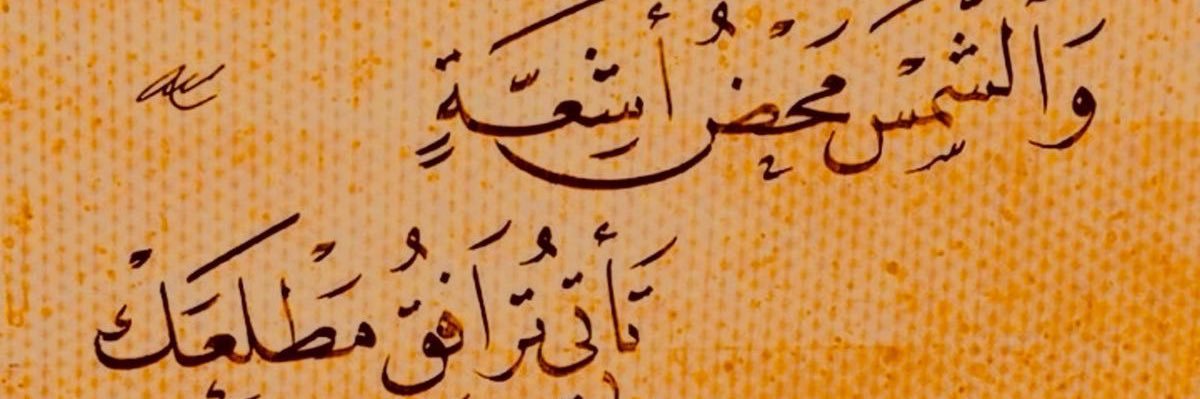 وَالشَّمْسَ مَحْضُ أَشِعَّةٍ
تَأْتِي تُرَافِقُ مَطْلَعَكْ